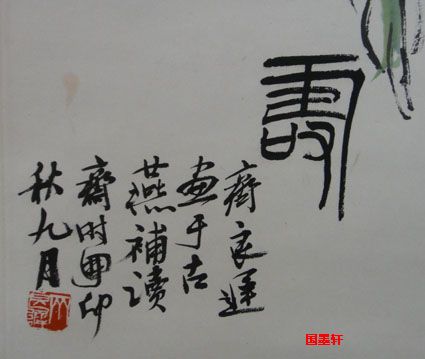 壽
齊良遲
畫于古
燕補讀
齋时卯
秋九月
国墨轩